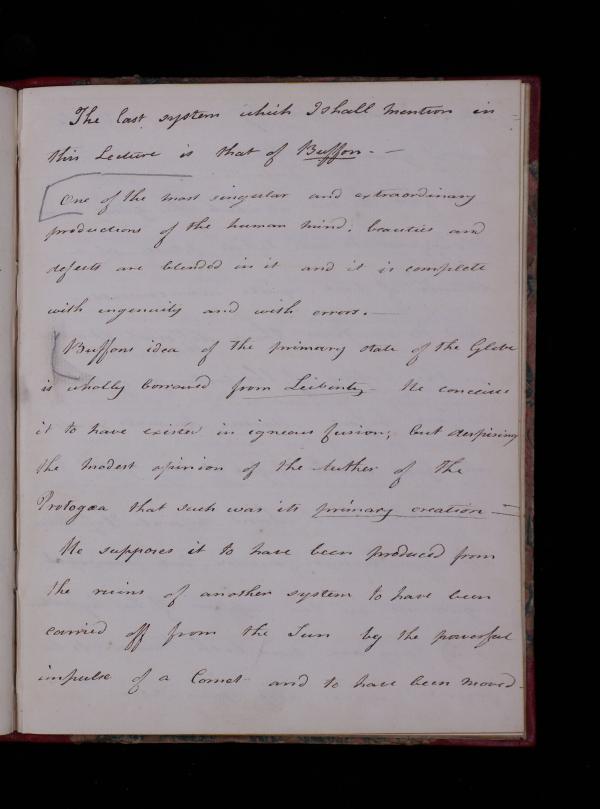 The last system which I shall mention in
this Lecture is that of Buffon. —
One of the most singular and extraordinary
productions of the human mind. beauties and
defects are blended in it and it is complete
with ingenuity and with errors. —
Buffons idea of the primary state of the Globe
is wholly borrowed from Leibintz — He conceives
it to have existed in igneous fusion; but despising
the modest opinion of the Author of the
Protogæa that such was its primary creation —
He supposes it to have been produced from
the ruins of another system to have been
carried off from the Sun by the powerful
impulse of a Comet and to have been moved